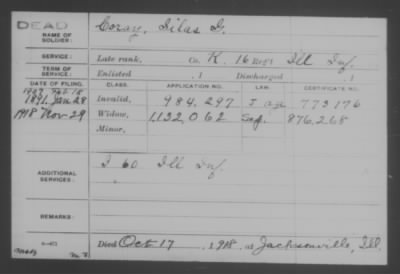 DEAD
NAME OF SOLDIER: Coray, Silas D.
SERVICE: Late rank, Co. K, 16 Reg't Ill Inf.
TERM OF SERVICE: Enlisted , 1 Discharged , 1
DATE OF FILING. CLASS. APPLICATION NO. LAW. CERTIFICATE NO.
1891 Jan 28 Invalid, 984,297 773176
1918 Nov 29 Widow, 1,132,062 876,268
Minor,
ADDITIONAL SERVICES: I 60 Ill Inf.
REMARKS:
Died Oct 17, 1918, at Jacksonville, Ill.